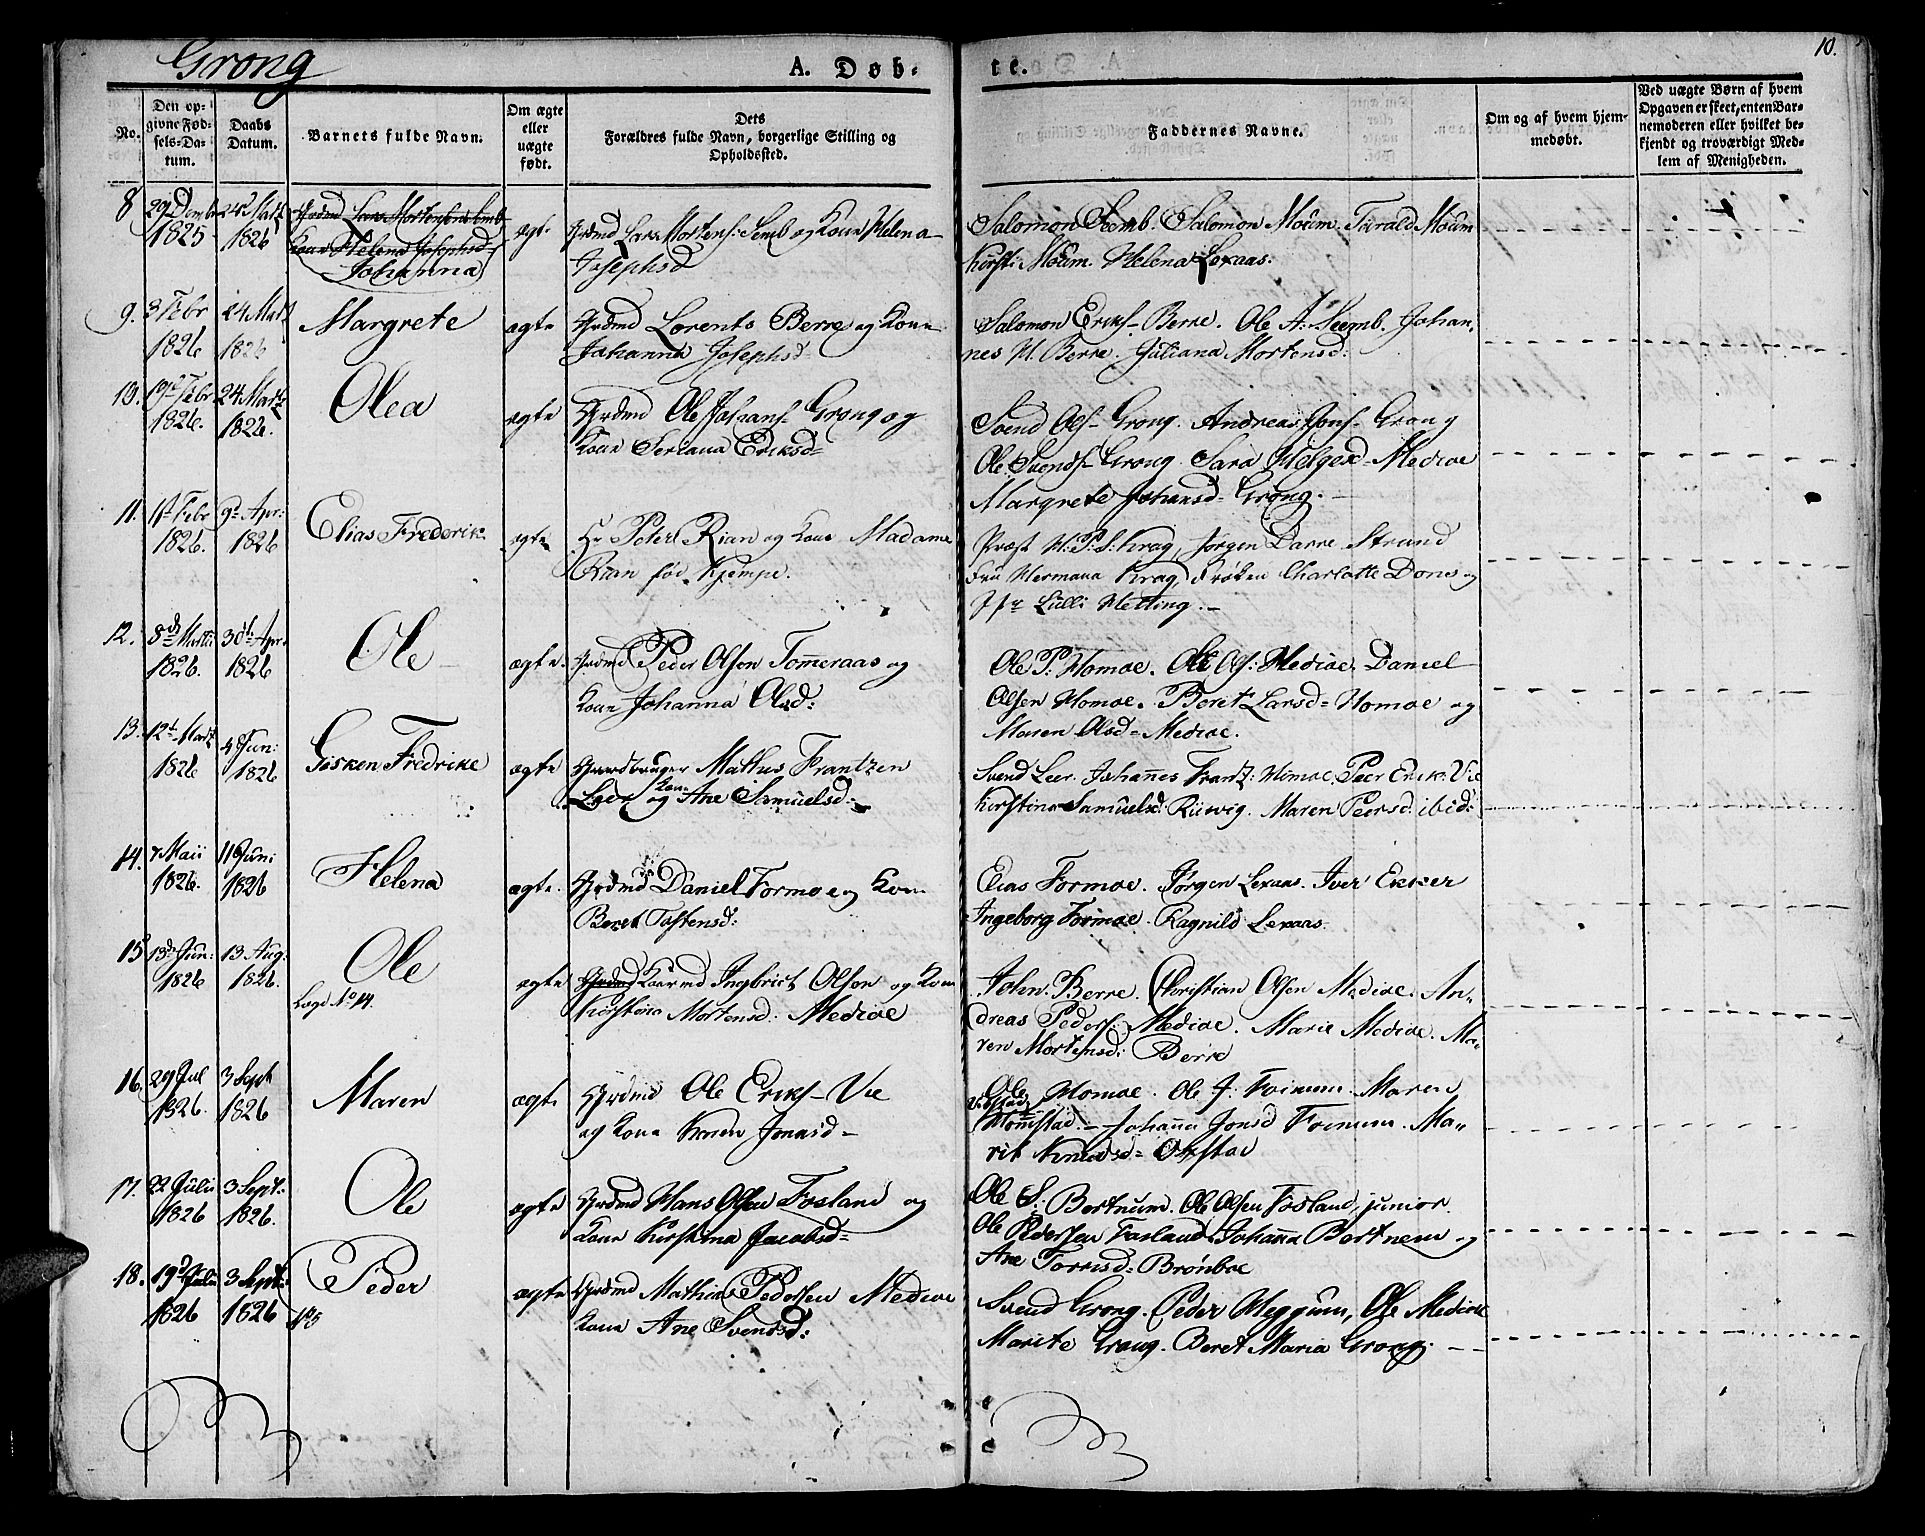 Grong
A. Døb-
te.
10.
No.
Den op-
givne Fød-
sels-Da-
tum.
Daabs
Datum.
Barnets fulde Navn.
Om ægte
eller
uægte
født.
Dets
Forældres fulde Navn, borgerlige Stilling og
Opholdssted.
Faddernes Navne.
Om og af hvem hjem-
medøbt.
Ved uægte Børn af hvem
Opgaven er skeet, enten Bar-
nemoderen eller hvilket be-
kjendt og troværdigt Med-
lem af Menigheden.
8 29 Decmb 24 Martz
1825 1826
Johanna
ægte
Grdmd Lars Mortens: Semb og Kone Helena
Josephsd
Salomon Seemb. Salomon Moum. Tarald Moum
Kirsti Moum. Helena Lexaas.
9. 3 Febr 24 Mart
1826 1826
Margrete
ægte
Grdmd Lorents Berre og Kone
Johanna Josephsd
Salomon Eriks- Berre. Ole A. Seemb. Johan-
nes H. Berre. Juliana Mortensd:
10. 19 Febr 24 Martz
1826. 1826.
Olea
ægte
Grdmd Ole Johans- Grong og
Kone Seriana Eriksd=
Svend Ols- Grong. Andreas Jons- Grong
Ole Svends- Grong. Sara Helgesd- Medioe
Margrete Johansd- Grong. -
11. 11 Febr 9 Apr:
1826. 1826
Elias Frederik
ægte
Hr Peter Rian og Kone Madame
Rian fød Kjempe.
Præst H: P: S: Krag, Jørgen Darre Strand
Fru Hermana Krag, Frøken Charlotte Dons og
Jfr Lulli Hetting. -
12. 8d Martii 30t Apr.
1826. 1826
Ole
ægte.
Grdmd Peder Olsen Tømeraas og
Kone Johanna Olsd:
Ole P: Homoe. Ole Ols: Medioe. Daniel
Olsen Homoe. Beret Larsd= Homoe og
Maren Olsd= Medioe.
13. 12t Martz 4 Jun:
1826 1826
Gisken Fredrike
ægte
Gaardbruger Mathus Frantzen
Leer Kone og Ane Samuelsd=
Svend Leer. Johannes Frantz: Homoe. Peer Erik: Vie
Kirstina Samuelsd: Rusvig. Maren Peersd: ibid:
14. 7 Maii 11 Juni
1826. 1826
Helena
ægte.
Grdmd Daniel Formoe og Kone
Beret Tostensd:
Elias Formoe. Jørgen Lexaas. Iver Ekker
Ingeborg Formoe. Ragnild Lexaas.
15 13d Jun: 13 Aug:
1826 1826.
Ole
Lægd No 14.
ægte
Huusmd Ingbrict Olsen og Kone
Kirstina Mortensd: Medioe
John Berre. Christian Olsen Medioe. An-
dreas Peders: Medioe. Marie Medioe. Ma-
ren Mortensd: Berre
16. 29 Jul 3 Sept
1826. 1826
Maren
ægte
Grdmd Ole Eriks- Vie
og Kone Karen Jonasd-
Ole Homoe. Ole J. Foinum. Maren
Johanna Jonsd Foinum. Ma-
rit Knudsd= Oxstad
17. 22 Julii 3 Sept:
1826 1826.
Ole
ægte
Grdmd Hans Olsen Fosland og
Kone Kirstina Jacobsd=
Ole S. Bortnum. Ole Olsen Fosland junior.
Ole Pedersen Fosland Johanna Bortnem og
Ane Torrisd: Brønboe
18. 19d Julii 3 Sept:
1826 1826
Peder
No 5
ægte
Grdmd Mathias Pedersen Medioe
Kone Ane Svendsd:
Svend Grong. Peder Heggum, Ole Medioe
Marite Grong. Beret Maria Grong. - -